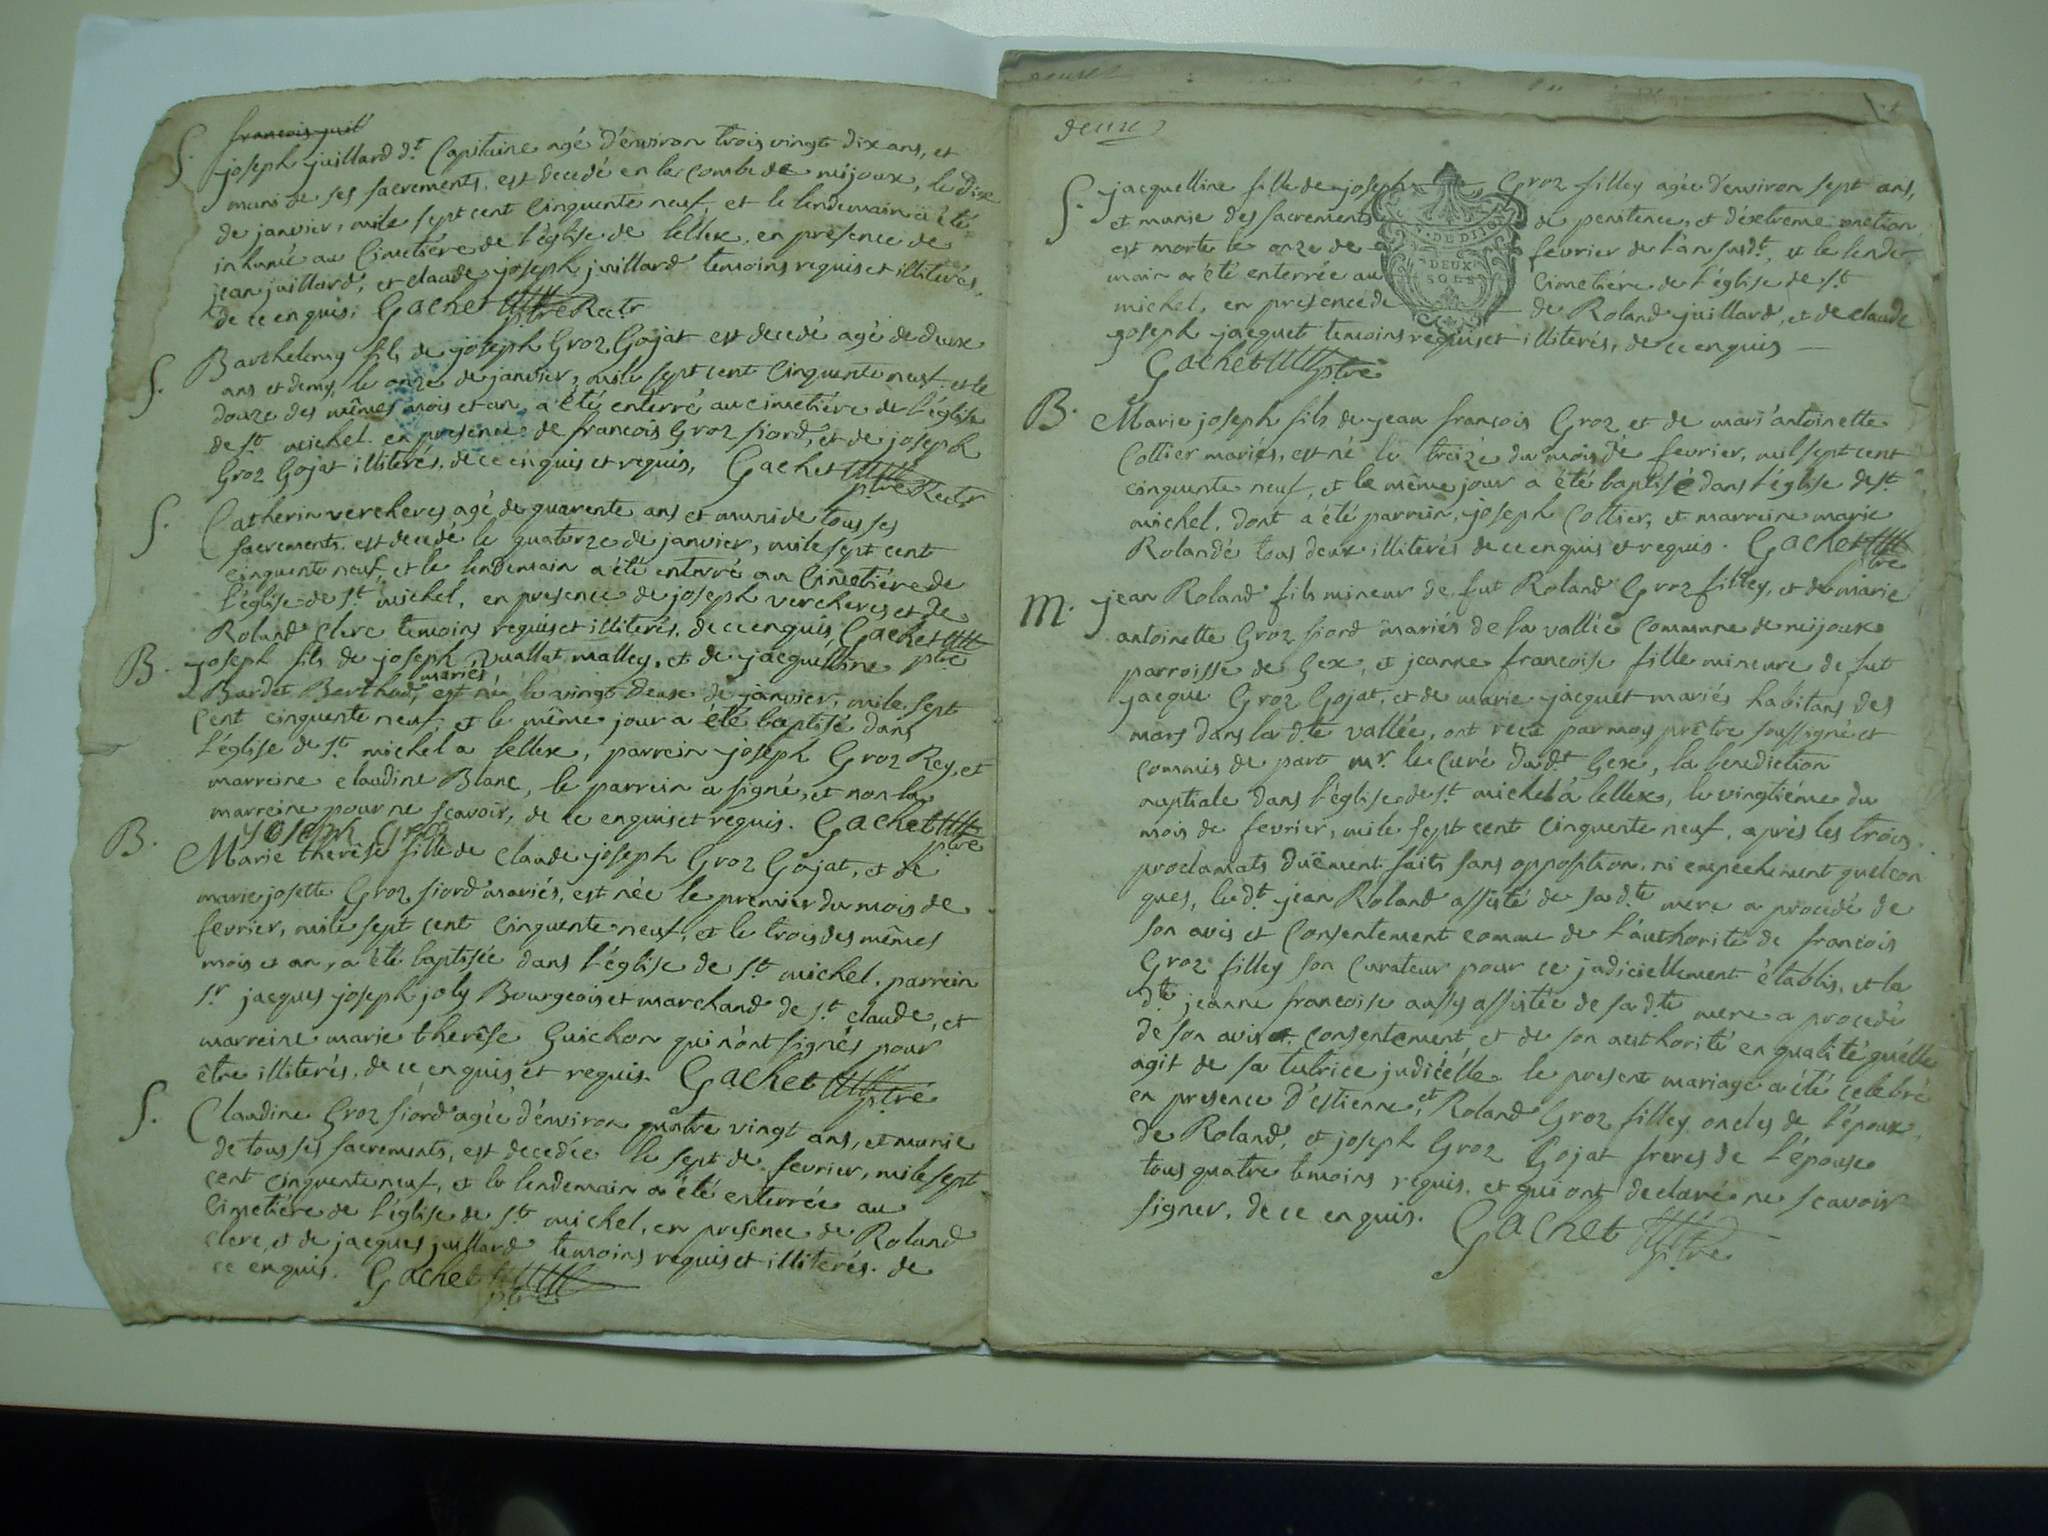 S. françois juil
joseph juillard dt. Capitaine agé d'environ trois vingt dix ans, et
muni de ses sacrements, est decedé en la combe de mijoux, le dix
de janvier, mile sept cent cinquente neuf, et le lendemain a été
inhumé au Cimetiére de l'église de lellex, en présence de
jean juillard, et claude joseph juillard temoins requis et illiterés,
de ce enquis, Gachet ptre Rectr
S. Barthelemy fils de joseph Groz Gojat est decedé agé de deux
ans et demy, le onze de janvier, mile sept cent cinquente neuf et le
douze des mêmes mois et an a été enterré au cimetiére de l'église
de St. michel en presence de francois Groz siord, et de joseph
Groz Gojat illiterés, de ce enquis et requis, Gachet ptre Rectr
S. Catherin vercheres agé de quarente ans et muni de tous ses
sacrements est decedé le quatorze de janvier, mile sept cent
cinquente neuf, et le lendemain a été enterré au Cimetiére de
l'église de St. michel, en presence de joseph vercheres et de
Roland Clerc temoins requis et illiterés. de ce enquis, Gachet ptre
B. joseph fils de joseph vuallat malley, et de jacquelline
Burdet Berthod, mariés est né le vingt deux de janvier, mile sept
cent cinquente neuf, et le même jour a été baptisé dans
l'église de St. michel a lellex, parrein joseph Groz Rey, et
marreine claudine Blanc, le parrein a signé, et non la
marreine pour ne scavoir, de ce enquis et requis. Gachet ptre
joseph Groz
B. Marie therêse fille de claude joseph Groz Gojat, et de
marie josette Groz siord mariés, est née le premier du mois de
fevrier, mile sept cent cinquente neuf, et le trois des mêmes
mois et an, a été baptisée dans l'église de St. michel, parrein
sr jacques joseph joly Bourgeois et marchand de St. claude, et
marreine marie therêse Guichon qui n'ont signés pour
être illiterés, de ce enquis et requis. Gachet ptre
S. Claudine Groz siord agée d'environ quatre vingt ans, et munie
de tous ses sacrements, est decedée le sept de fevrier, mile sept
cent cinquente neuf, et le lendemain a été enterrée au
Cimetiére de l'église de St. michel, en presence de Roland
clerc, et de jacques juillard temoins requis et illiterés. de
ce enquis. Gachet ptre
deux
S. jacquelline fille de joseph Groz filley agée d'environ sept ans,
et munie des sacrements de penitence, et d'extreme onction
est morte le onze de fevrier de l'an susdt. et le lende-
main a été enterrée au Cimetiére de l'église de St.
michel, en presence de de Roland juillard, et de claude
joseph jacquet temoins requis et illiterés, de ce enquis
DE DIJON
DEUX
SOLS
Gachet ptre
B. Marie joseph fils de jean françois Groz et de mari'antoinette
Cottier mariés, est né le treize du mois de fevrier, mil sept cent
cinquente neuf, et le même jour a été baptisé dans l'église de St.
michel, dont a été parrein, joseph Cottier, et marreine marie
Rolandé tous deux illiterés de ce enquis et requis. Gachet ptre
M. jean Roland fils mineur de fut Roland Groz filley, et de marie
antoinette Groz siord mariés de la vallée Commune de mijoux
parroisse de Gex, et jeanne francoise fille mineure de fut
jacque Groz Gojat, et de marie jacquet mariés habitans des
mars dans lad.te vallée, ont recu par moy prêtre soussigné et
commis de part mr. le Curé dudt. Gex, la benediction
nuptiale dans l'église de St. michel à lellex, le vingtiéme du
mois de fevrier, mile sept cent cinquente neuf, après les trois
proclamats duëment faits sans opposition, ni empêchement quelcon
ques, ledt. jean Roland assisté de sad.te mere a procedé de
son avis et Consentement comme de l'authorité de francois
Groz filley son Curateur pour ce judiciellement établis, et la
dte jeanne francoise aussy assistée de sad.te mere a procedé
de son avis et consentement et de son authorité en qualité qu'elle
agit de sa tutrice judiciélle. le present mariage a été celebré
en presence d'estienne, et Roland Groz filley oncles de l'époux,
de Roland, et joseph Groz Gojat freres de l'épouse
tous quatre temoins requis, et qui ont declaré ne scavoir
signer, de ce enquis. Gachet ptre